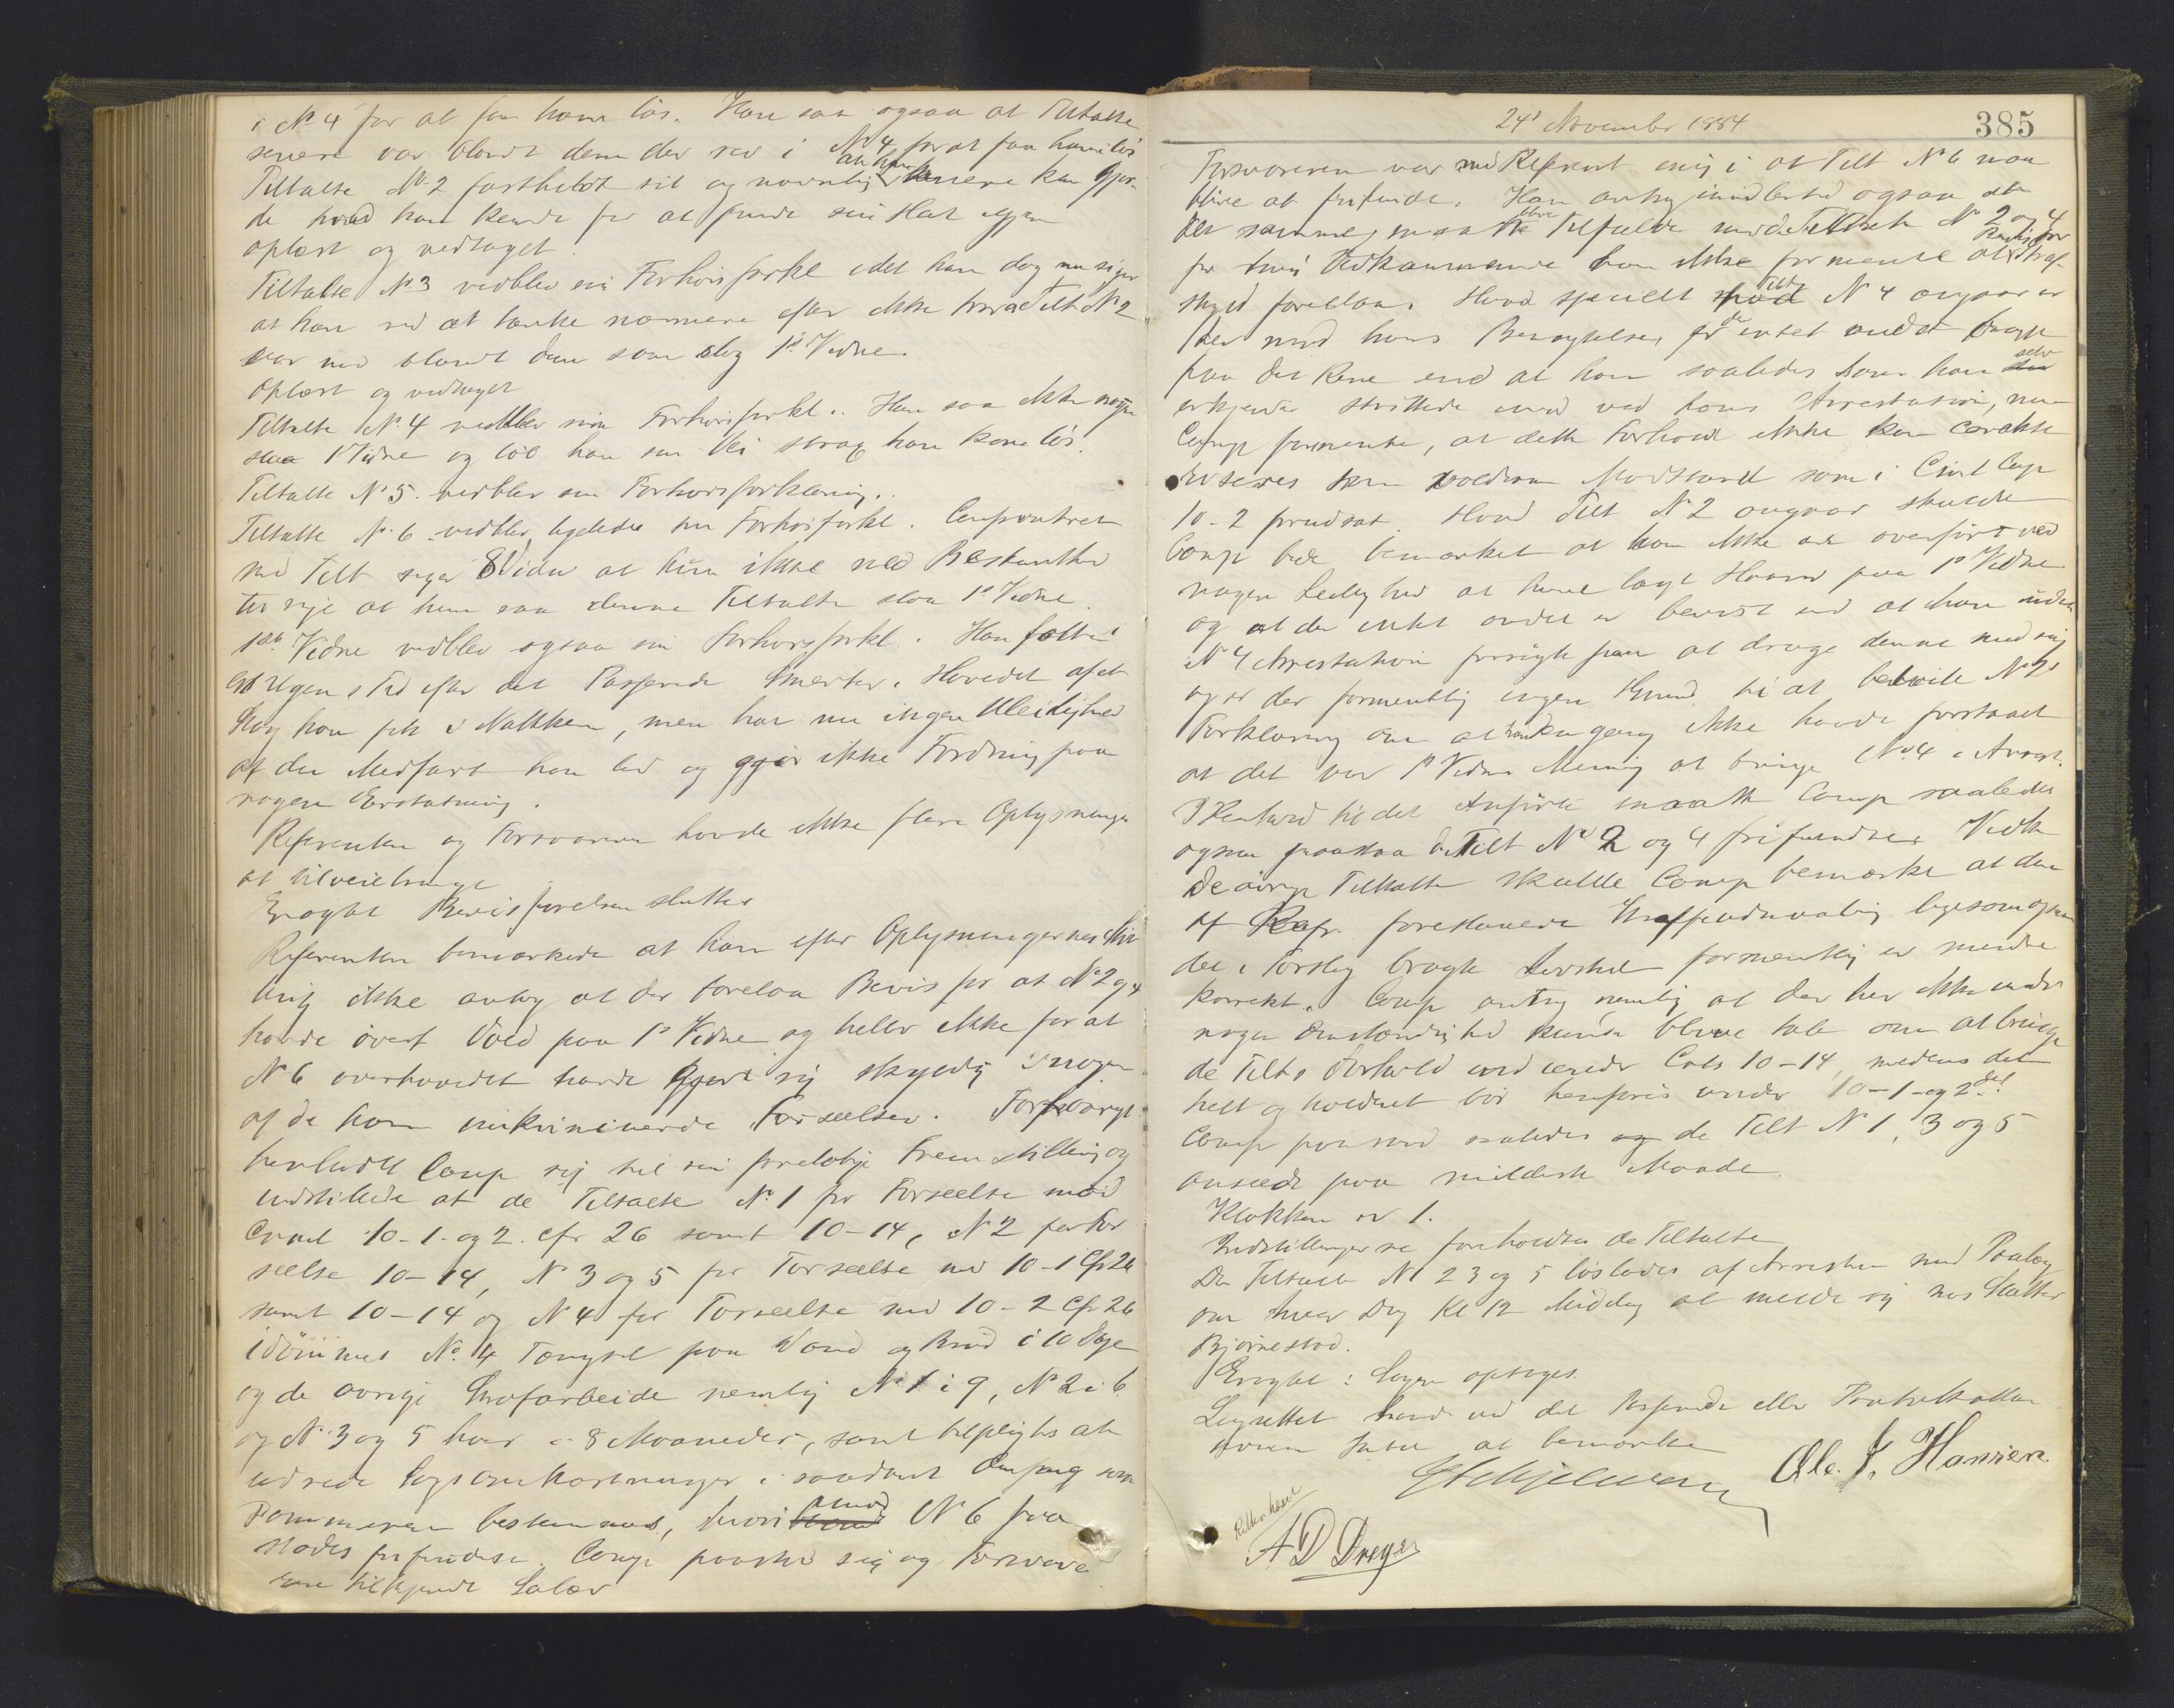 i No 4 for at faa ham løs. Han saa ogsaa at Tiltalte
senere var blandt dem der rev i No 4 for at faa ham løs
Tiltalte No 2 fastholdt sit og navnlig at han senere kun gjor-
de hvad han kunde for at finde sin Hat igjen
oplæst og vedtaget.
Tiltalte No 3 vedblev sin Forhørsforkl idet han dog nu siger
at han ved at tænke nærmere efter ikke tror at Tilt No 2
var med blandt dem som slog 1ste Vidne.
Oplæst og vedtaget
Tiltalte No 4 vedblev sin Forhørsforkl. Han saa ikke nogen
slaa 1 Vidne og løb han sin Vei strax han kom løs.
Tiltalte No 5. vedblev sin Forhørsforklaring.
Tiltalte No 6. vedblev ligeledes sin Forhørsforkl. Confronteret
med Tilt siger 8 Vidne at hun ikke med Bestemthed
tør sige at hun saa denne Tiltalte slaa 1ste Vidne.
1ste Vidne vedblev ogsaa sin Forhørsforkl. Han følte i
en Ugens Tid efter det Passerede Smerter i Hovedet af et
Slag han fik i Nakken, men har nu ingen Uleilighed
af den Medfart han led og gjør ikke Fordring paa
nogen Erstatning.
Referenten og Forsvareren havde ikke flere Oplysninger
at tilveiebringe
Eragtet Bevisførelsen sluttes
Referenten bemærkede at han efter Oplysningernes
ikke antog at der forelaa Bevis for at No 2 og 4
havde øvet Vold paa 1ste Vidne og heller ikke for at
No 6 overhovedet havde gjort sig skyldig i nogen
af de ham inkriminerede Forseelser. Forøvrigt
henholdt Comp sig til sin foreløbige Fremstilling og
indstillede at de Tiltalte No 1 for Forseelse mod
Crml 10-1- og 2. cfr 26 samt 10-14, No 2 for For
seelse 10-14, No 3 og 5 for Forseelse mod 10-1 cfr 26
samt 10-14 og No 4 for Forseelse mod 10-2 cfr 26
idømmes No. 4 Fængsel paa Vand og Brød i 10 Dage
og de øvrige Strafarbeide nemlig No 1 i 9, No 2 i 6
og No 3 og 5 hver i 8 Maaneder, samt tilpligtes at
udrede Sagsomkostninger i saadant Omfang som
Dommeren bestemmes, hvorimod No 6 paa
stodes frifindes. Comp paastod sig og Forsvare
ren tilkjendt Salær
24de November 1884
385
Forsvareren var med Referent enig i at Tilt No 6 maa
blive at frifinde. Han antog imidlertid ogsaa at
det samme maatte blive Tilfælde med Tiltalte No 2 og 4
for hvis Vedkommende han ikke formente at Bevis for Straf-
skyld forelaa. Hvad specielt Tilt No 4 angaar er
der mod hans Benægtelse, intet andet bragt
paa det Rene end at han saaledes som han selv
erkjender strittede imod ved hans Arrestation, men
Comp formente, at dette Forhold ikke kan carakte
riseres som voldsom Modstand som i Criml Cap
10-2 forudsat. Hvad Tilt No 2 angaar skulde
Comp bede bemærket at han ikke er overført ved
nogen Leilighed at have lagt Haand paa 1ste Vidne
og at der intet andet er bevist end at han under
No 4 Arrestation forsøgte paa at drage denne med sig
og er der formentlig ingen Grund til at betvivle No 2s
Forklaring om at han engang ikke havde forstaaet
at det var 1ste Vidnes Mening at bringe No 4 i Arrest.
I Henhold til det Anførte maatte Comp saaledes
ogsaa paastaa de Tilt No 2 og 4 frifundne. Vedk
de øvrige Tiltalte skulde Comp bemærke at den
af Refr. foreslaaede Straffeudmaaling ligesom ogsaa
det i Forslag bragte Lovsted formentlig er mindre
korrekt. Comp antog nemlig at der her ikke under
nogen Omstændighed kunde blive tale om at bringe
de Tilts Forhold ind under Cals 10-14, medens det
helt og holdent bør henføres under 10-1- og 2det
Comp paastod saaledes de Tilt No 1, 3 og 5
anseede paa mildeste Maade.
Klokken er 1.
Indstillingerne foreholdtes de Tiltalte
De Tiltalte No 2 3 og 5 løslades af Arresten med Paalæg
om hver Dag Kl 12 Middag at melde sig hos Slutter
Bjørnestad.
Eragtet: Sagen optages.
Lagrettet havde ved det Passerede eller Protokollationen
Intet at bemærke
Ole. J. Hansen.
A D Dreyer